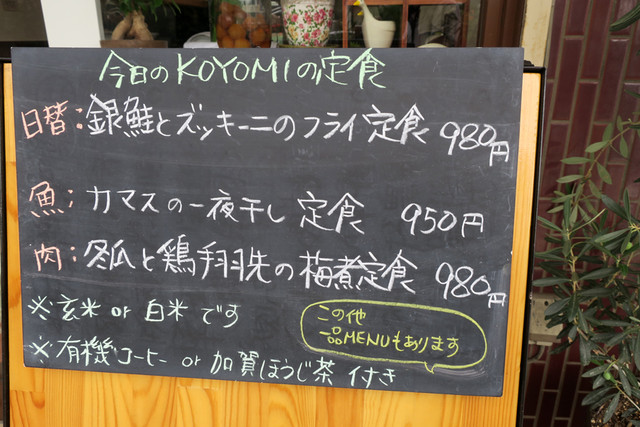 今日のKOYOMIの定食
日替:銀鮭とズッキーニのフライ定食 980円
魚:カマスの一夜干し 定食 950円
肉:冬瓜と鶏手羽先の梅煮定食 980円
※玄米 or 白米 です
※有機コーヒー or 加賀ほうじ茶 付き
この他
一品MENUもあります